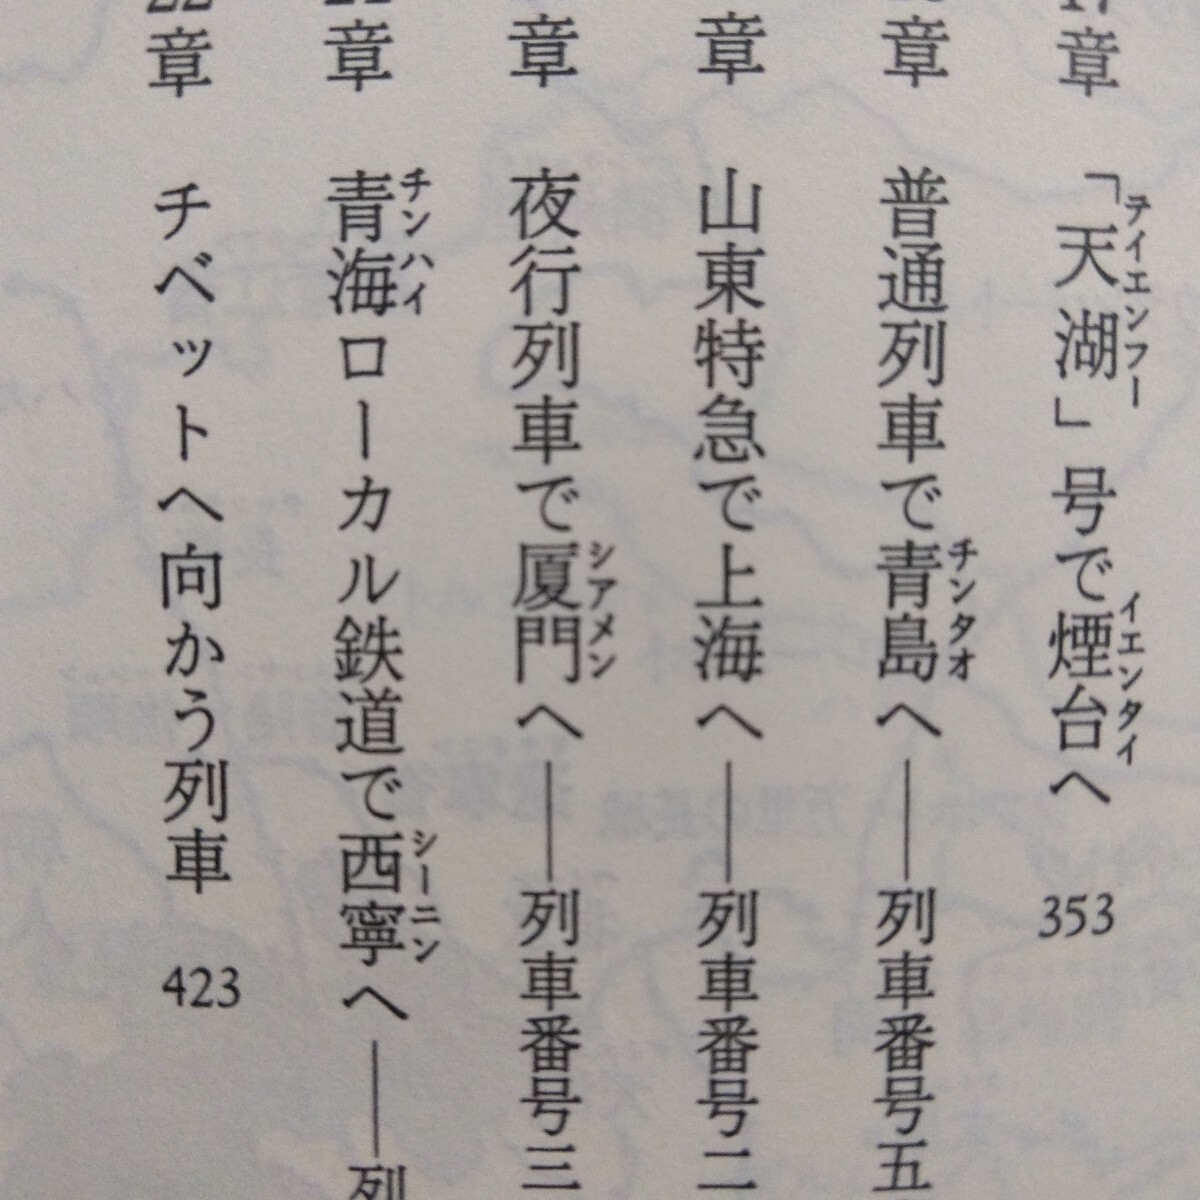 17章 「天湖」号で煙台へ 353
ティエンフー イエンタイ
章 普通列車で青島へ──列車番号五
チンタオ
章 山東特急で上海へ──列車番号二
章 夜行列車で厦門へ──列車番号三
シアメン
21章 青海ローカル鉄道で西寧へ──列
チンハイ シーニン
22章 チベットへ向かう列車 423